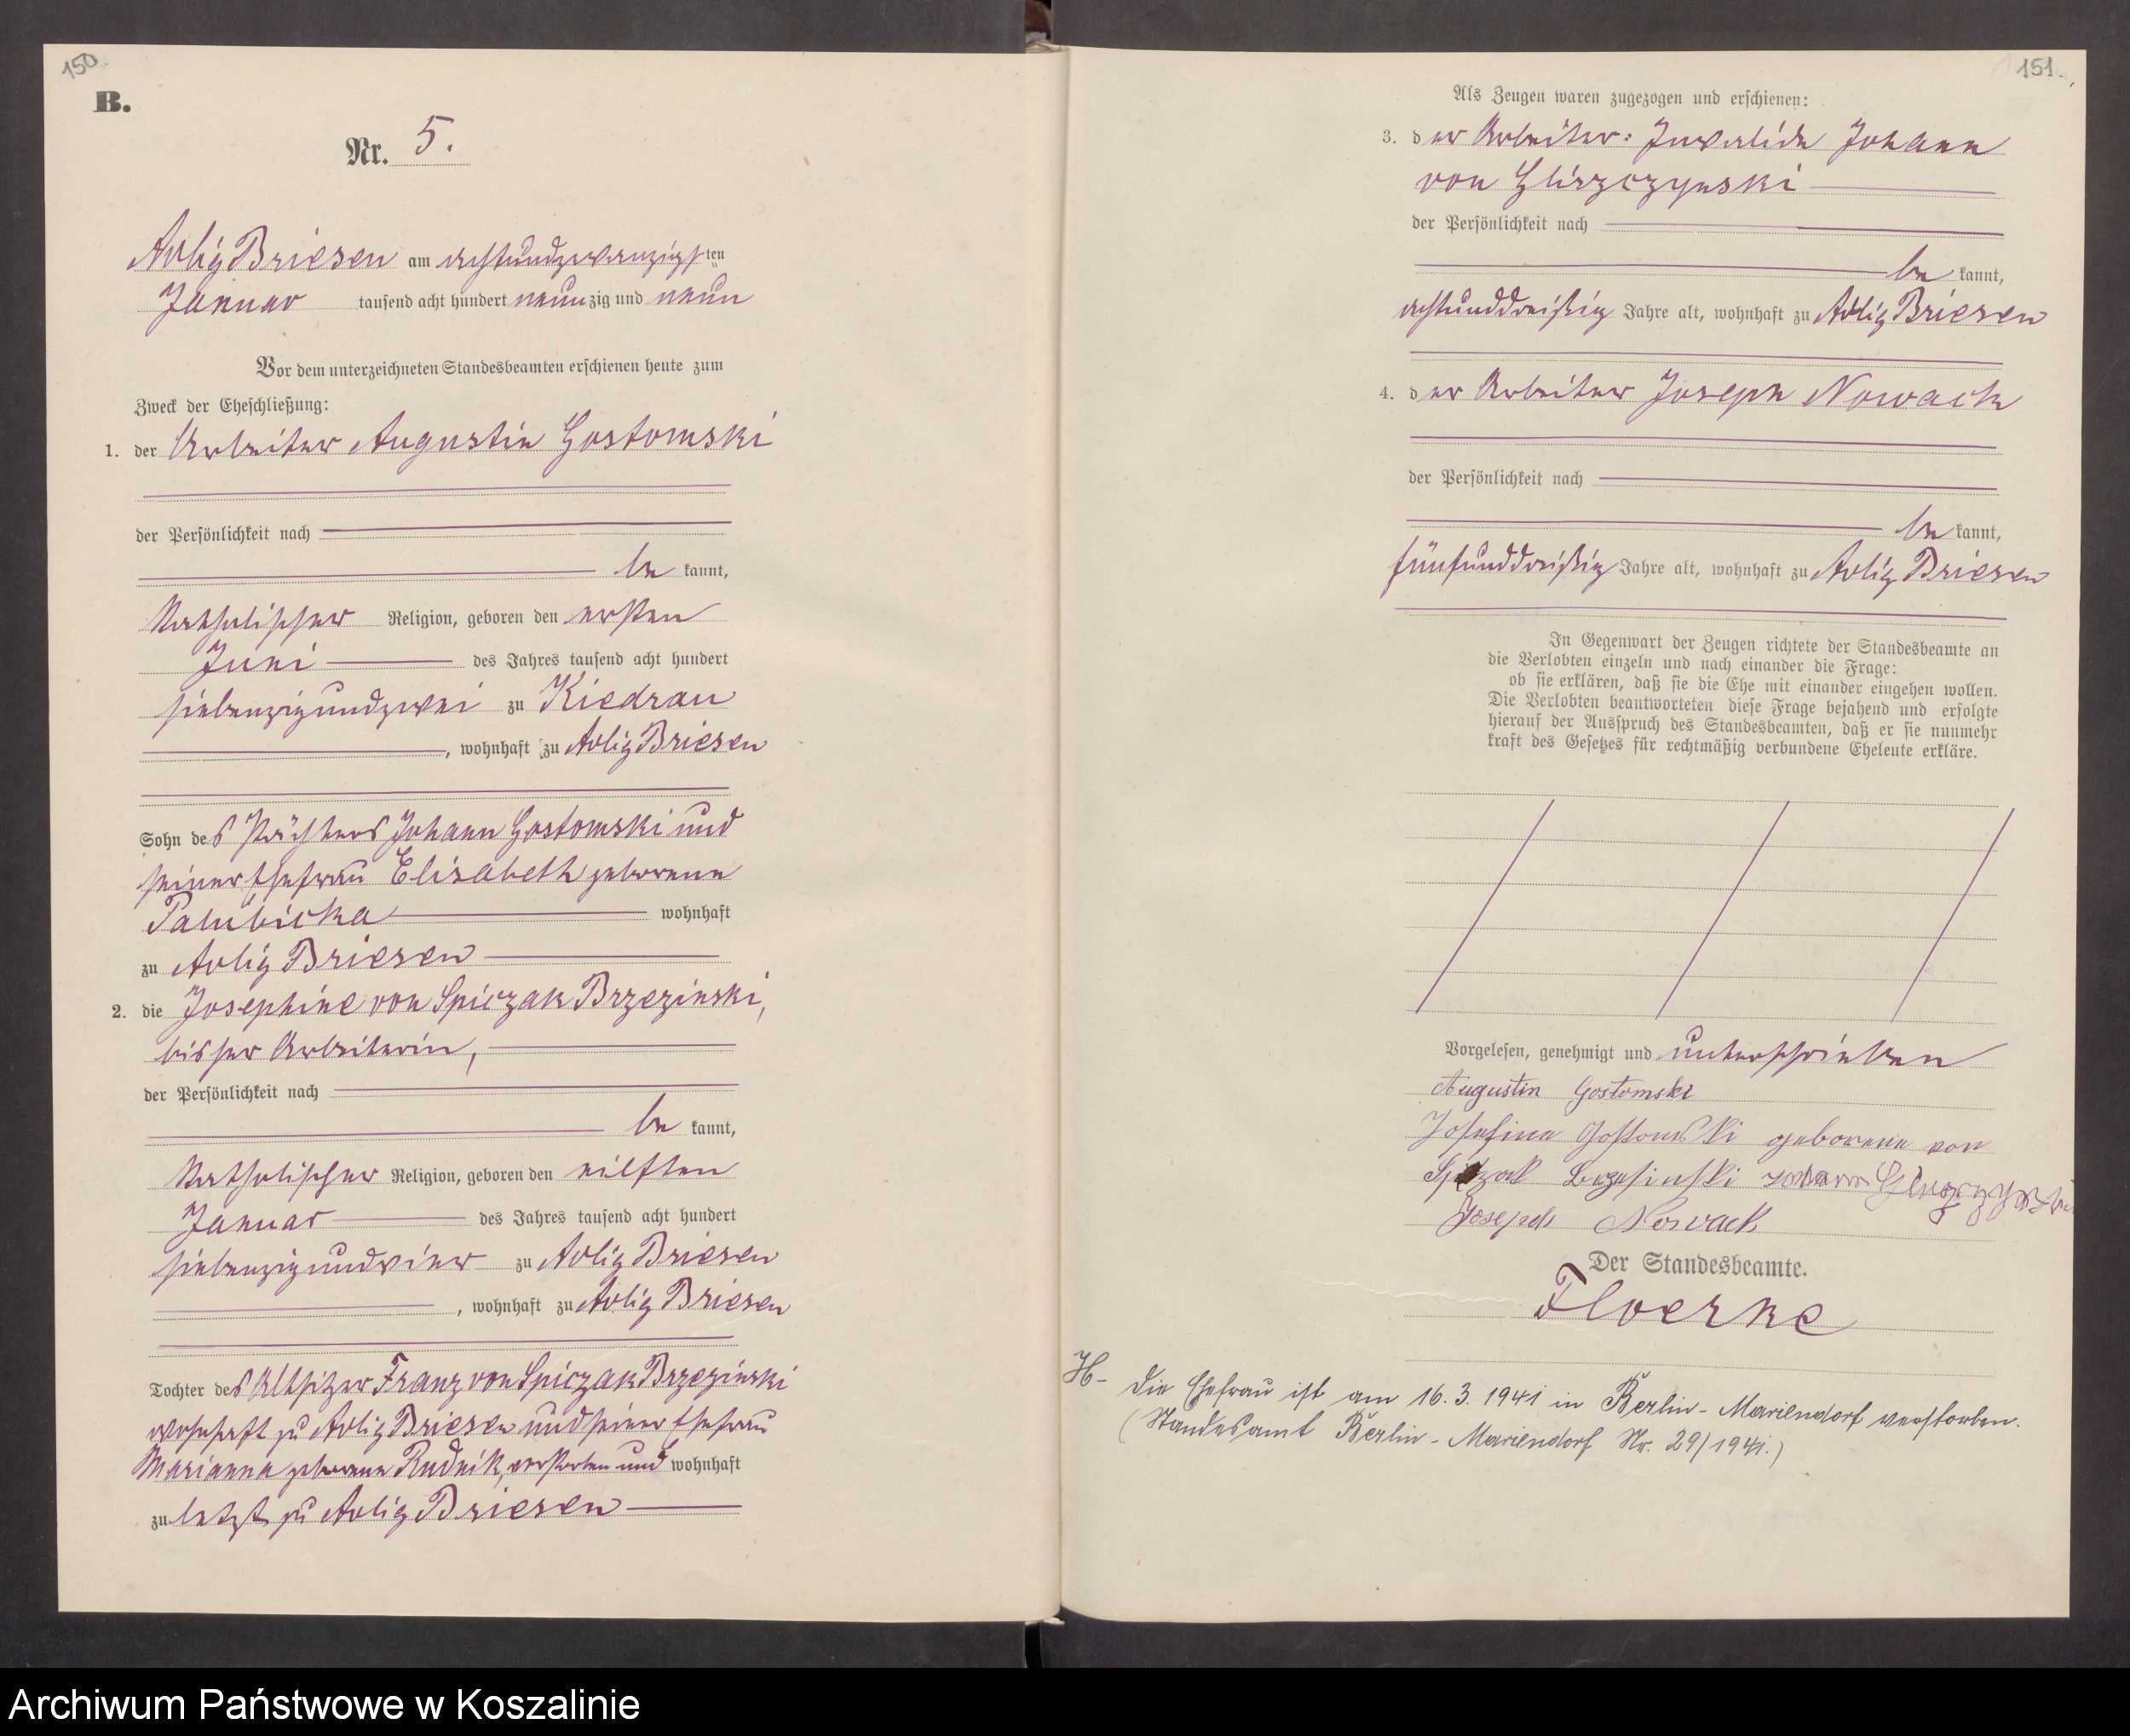 150
B.
Nr. 5.
Adlig Briesen am achtundzwanzigsten
Januar tausend acht hundert neunzig und neun
Vor dem unterzeichneten Standesbeamten erschienen heute zum
Zweck der Eheschließung:
1. der Arbeiter Augustin Gostomski
der Persönlichkeit nach
bekannt,
katholischer Religion, geboren den ersten
Juni des Jahres tausend acht hundert
siebenzigundzwei zu Kiedrau
, wohnhaft zu Adlig Briesen
Sohn des Pächters Johann Gostomski und
seiner Ehefrau Elisabeth geborene
Palubicka wohnhaft
zu Adlig Briesen
2. die Josephine von Spiczak Brzezinski,
bisher Arbeiterin,
der Persönlichkeit nach
bekannt,
katholischer Religion, geboren den eilften
Januar des Jahres tausend acht hundert
siebenzigundvier zu Adlig Briesen
, wohnhaft zu Adlig Briesen
Tochter des Altsitzer Franz von Spiczak Brzezinski
wohnhaft zu Adlig Briesen und seiner Ehefrau
Marianna geborene Rudnik, verstorben und wohnhaft
zuletzt zu Adlig Briesen
151.
Als Zeugen waren zugezogen und erschienen:
3. der Arbeiter: Invalide Johann
von Gliszczynski
der Persönlichkeit nach
bekannt,
achtunddreißig Jahre alt, wohnhaft zu Adlig Briesen
4. der Arbeiter Joseph Nowack
der Persönlichkeit nach
bekannt,
fünfunddreißig Jahre alt, wohnhaft zu Adlig Briesen
In Gegenwart der Zeugen richtete der Standesbeamte an
die Verlobten einzeln und nach einander die Frage:
ob sie erklären, daß sie die Ehe mit einander eingehen wollen.
Die Verlobten beantworteten diese Frage bejahend und erfolgte
hierauf der Ausspruch des Standesbeamten, daß er sie nunmehr
kraft des Gesetzes für rechtmäßig verbundene Eheleute erkläre.
Vorgelesen, genehmigt und unterschrieben
Augustin Gostomski
Josefine Gostomski geborene von
Spizak Brzesinski Johann Gliszczynski
Joseph Nowack
Der Standesbeamte.
Floerke
H- Die Ehefrau ist am 16.3.1941 in Berlin-Mariendorf verstorben.
(Standesamt Berlin-Mariendorf Nr. 29/1941.)
Archiwum Państwowe w Koszalinie